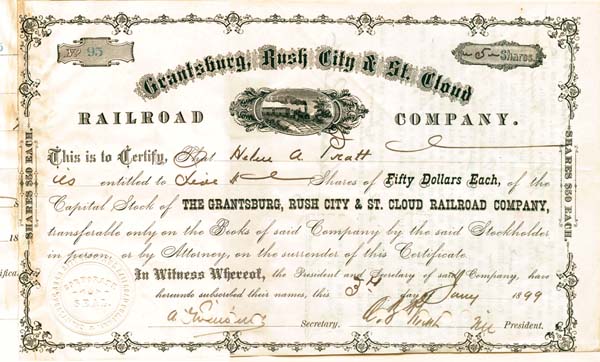 No 95
5 Shares.
Grantsburg, Rush City & St. Cloud
RAILROAD COMPANY.
This is to Certify, That Helen A. Pratt
is entitled to Five Shares of Fifty Dollars Each, of the
Capital Stock of THE GRANTSBURG, RUSH CITY & ST. CLOUD RAILROAD COMPANY,
transferable only on the Books of said Company by the said Stockholder
in person, or by Attorney, on the surrender of this Certificate.
In Witness Whereof, the President and Secretary of said Company, have
hereunto subscribed their names, this day of 1899
Secretary. President.
SHARES $50 EACH.
SHARES $50 EACH.
CORPORATE
SEAL